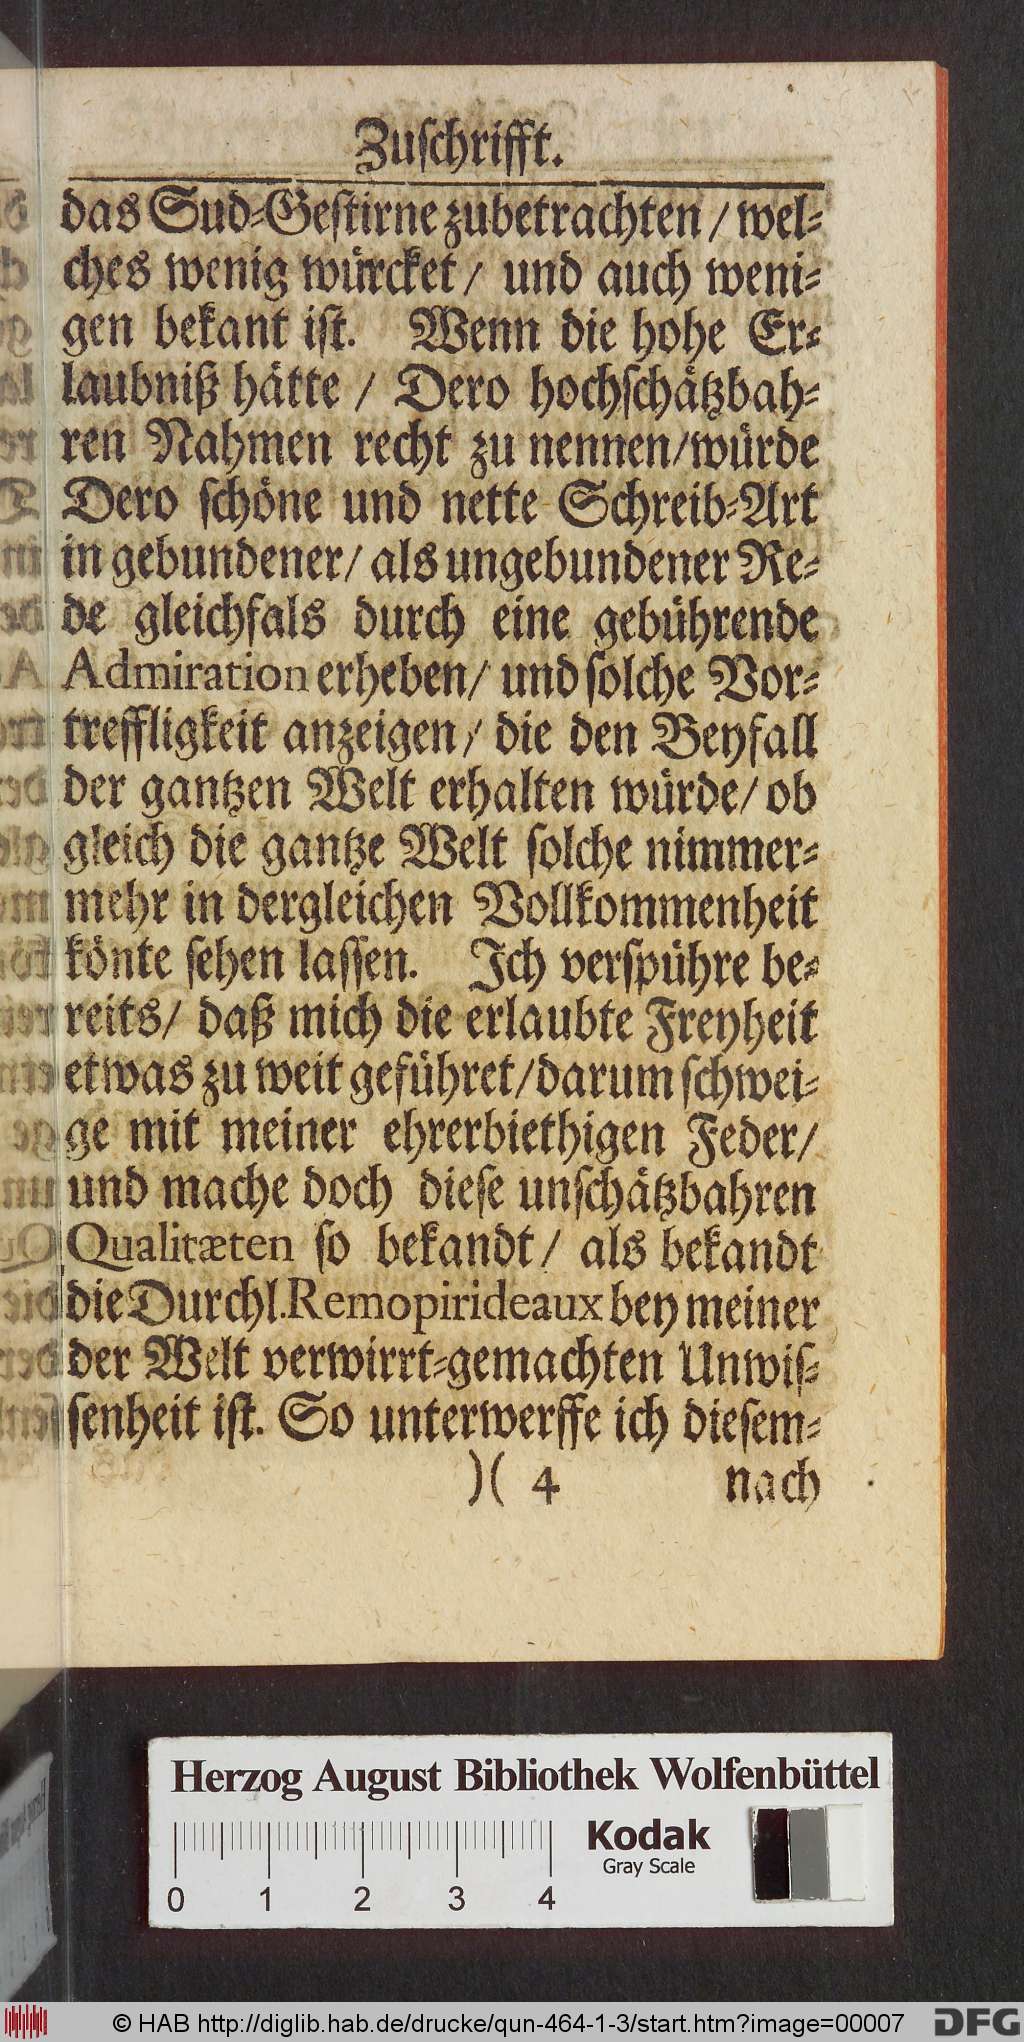 Zuſchrifft.
das Sud-Geſtirne zubetrachten / wel-
ches wenig würcket / und auch weni-
gen bekant iſt. Wenn die hohe Er-
laubniß hätte / Dero hochſchätzbah-
ren Nahmen recht zu nennen/würde
Dero ſchöne und nette Schreib-Art
in gebundener/ als ungebundener Re-
de gleichfals durch eine gebührende
Admiration erheben/ und ſolche Vor-
treffligkeit anzeigen/ die den Beyfall
der gantzen Welt erhalten würde/ ob
gleich die gantze Welt ſolche nimmer-
mehr in dergleichen Vollkommenheit
könte ſehen laſſen. Ich verſpühre be-
reits/ daß mich die erlaubte Freyheit
etwas zu weit geführet/darum ſchwei-
ge mit meiner ehrerbiethigen Feder/
und mache doch dieſe unſchätzbahren
Qualitæten ſo bekandt/ als bekandt
die Durchl. Remopirideaux bey meiner
der Welt verwirrt-gemachten Unwiſ-
ſenheit iſt. So unterwerffe ich dieſem-
)( 4 nach
Herzog August Bibliothek Wolfenbüttel
Kodak
Gray Scale
0 1 2 3 4
© HAB http://diglib.hab.de/drucke/qun-464-1-3/start.htm?image=00007
DFG